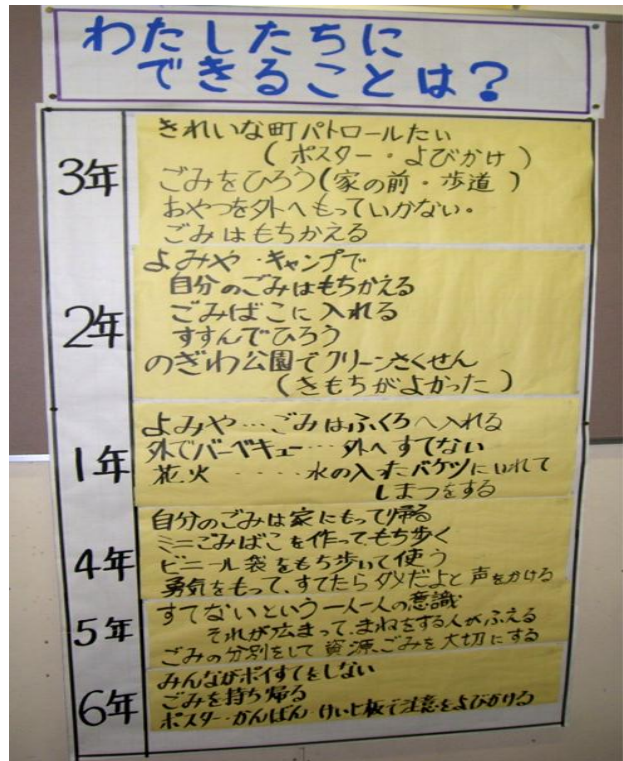 わたしたちに
できることは?
3年
きれいな町パトロールたい
(ポスター・よびかけ)
ごみをひろう(家の前・歩道)
おやつを外へもっていかない。
ごみはもちかえる
2年
よみや・キャンプで
自分のごみはもちかえる
ごみばこに入れる
すすんでひろう
のぎわ公園でクリーンさくせん
(きもちがよかった)
1年
よみや…ごみはふくろへ入れる
外でバーベキュー…外へすてない
花火……水の入ったバケツにいれて
しまつをする
4年
自分のごみは家にもって帰る
ミニごみばこを作ってもち歩く
ビニール袋をもち歩いて使う
勇気をもって、すてたらダメだよと声をかける
5年
すてないという一人一人の意識
それが広まって、まねをする人がふえる
ごみの分別をして資源ごみを大切にする
6年
みんながポイすてをしない
ごみを持ち帰る
ポスター・かんばん・けいじ板で注意をよびかける